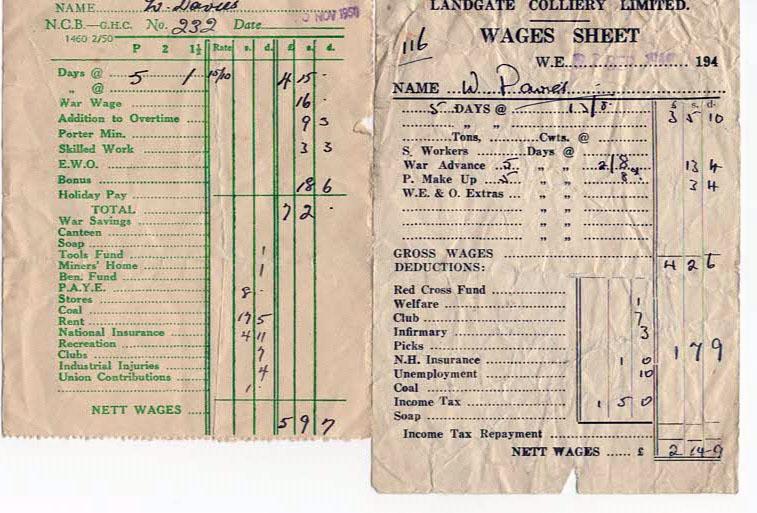 NAME W. Davies
N.C.B.—G.H.C. No. 232 Date NOV 1950
1460 2/50
P 2 1½ Rate s. d. £ s. d.
Days @ 5 1 15/10 4 15 -
" @
War Wage 16 -
Addition to Overtime 9 3
Porter Min.
Skilled Work 3 3
E.W.O.
Bonus 18 6
Holiday Pay
TOTAL 7 2 -
War Savings
Canteen
Soap
Tools Fund 1
Miners' Home 1
Ben. Fund
P.A.Y.E. 8 -
Stores
Coal
Rent 17 5
National Insurance 4 11
Recreation
Clubs 7
Industrial Injuries 4
Union Contributions
1 -
NETT WAGES 5 9 7
LANDGATE COLLIERY LIMITED.
WAGES SHEET
116
W.E. 194
NAME W Davies
£ s. d.
5 DAYS @ 13/2 3 5 10
" "
Tons, Cwts. @
S. Workers Days @
War Advance 5 " " 2/8 13 4
P. Make Up 5 " " 8 3 4
W.E. & O. Extras " "
" "
" "
" "
GROSS WAGES 4 2 6
DEDUCTIONS:
Red Cross Fund
Welfare 1
Club 7
Infirmary 3
Picks 1 7 9
N.H. Insurance 1 0
Unemployment 10
Coal
Income Tax 1 5 0
Soap
Income Tax Repayment
NETT WAGES £ 2 14-9